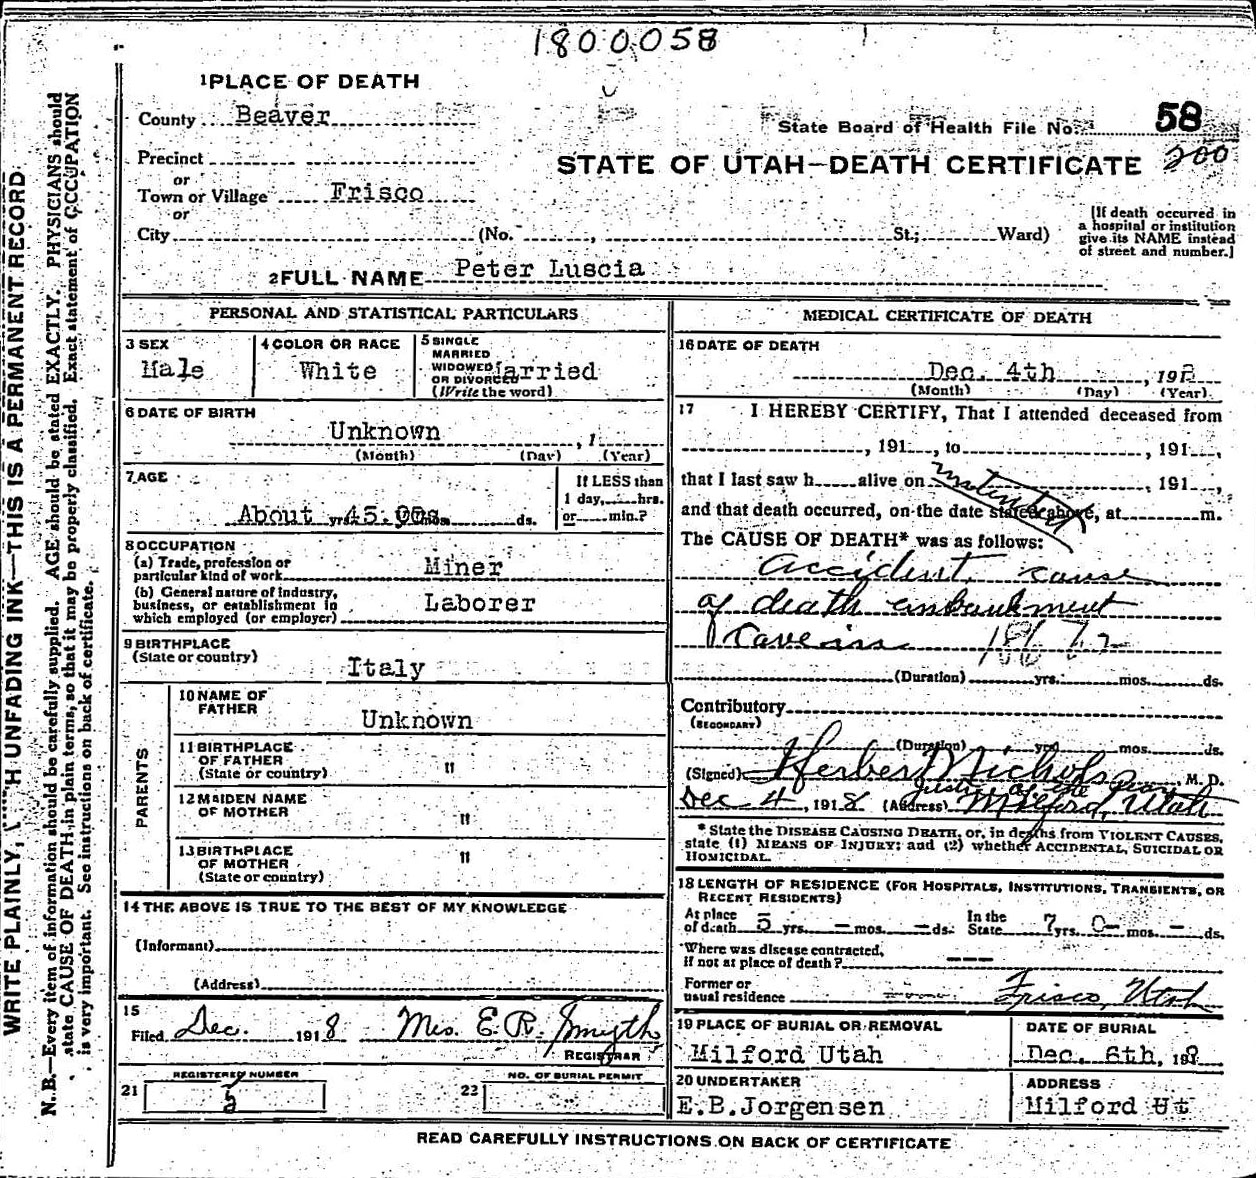 1800058
1 PLACE OF DEATH
County Beaver
State Board of Health File No. 58
Precinct
or
STATE OF UTAH—DEATH CERTIFICATE 200
Town or Village Frisco
or
City (No. , St.; Ward)
[If death occurred in
a hospital or institution
give its NAME instead
of street and number.]
2 FULL NAME Peter Luscia
PERSONAL AND STATISTICAL PARTICULARS
3 SEX
Male
4 COLOR OR RACE
White
5 SINGLE
MARRIED
WIDOWED
OR DIVORCED
(Write the word)
Married
6 DATE OF BIRTH
Unknown , 1
(Month) (Day) (Year)
7 AGE
About yrs. 45 mos. ds.
If LESS than
1 day, hrs.
or min.?
8 OCCUPATION
(a) Trade, profession or
particular kind of work Miner
(b) General nature of industry,
business, or establishment in
which employed (or employer) Laborer
9 BIRTHPLACE
(State or country) Italy
PARENTS
10 NAME OF
FATHER Unknown
11 BIRTHPLACE
OF FATHER
(State or country) "
12 MAIDEN NAME
OF MOTHER "
13 BIRTHPLACE
OF MOTHER
(State or country) "
14 THE ABOVE IS TRUE TO THE BEST OF MY KNOWLEDGE
(Informant)
(Address)
15
Filed Dec. 1918 Mrs. E. R. Smyth
REGISTRAR
REGISTERED NUMBER
21 5
NO. OF BURIAL PERMIT
22
MEDICAL CERTIFICATE OF DEATH
16 DATE OF DEATH
Dec. 4th , 1918
(Month) (Day) (Year)
17 I HEREBY CERTIFY, That I attended deceased from
, 191 , to , 191 ,
that I last saw h alive on , 191 ,
and that death occurred, on the date stated above, at m.
The CAUSE OF DEATH* was as follows:
Accident, cause
of death embankment
cave in
(Duration) yrs. mos. ds.
Contributory
(SECONDARY)
(Duration) yrs. mos. ds.
(Signed) Herbert Nichols , M. D.
Justice of the peace
Dec 4 , 1918 (Address) Milford, Utah
* State the DISEASE CAUSING DEATH, or, in deaths from VIOLENT CAUSES,
state (1) MEANS OF INJURY; and (2) whether ACCIDENTAL, SUICIDAL OR
HOMICIDAL.
18 LENGTH OF RESIDENCE (FOR HOSPITALS, INSTITUTIONS, TRANSIENTS, OR
RECENT RESIDENTS)
At place
of death 5 yrs. — mos. — ds. In the
State 7 yrs. 0 mos. — ds.
Where was disease contracted,
if not at place of death? ---
Former or
usual residence Frisco, Utah
19 PLACE OF BURIAL OR REMOVAL
Milford Utah
DATE OF BURIAL
Dec. 6th, 191
20 UNDERTAKER
E.B.Jorgensen
ADDRESS
Milford Ut
READ CAREFULLY INSTRUCTIONS ON BACK OF CERTIFICATE
WRITE PLAINLY, WITH UNFADING INK—THIS IS A PERMANENT RECORD
N. B.—Every item of information should be carefully supplied. AGE should be stated EXACTLY. PHYSICIANS should
state CAUSE OF DEATH in plain terms, so that it may be properly classified. Exact statement of OCCUPATION
is very important. See instructions on back of certificate.